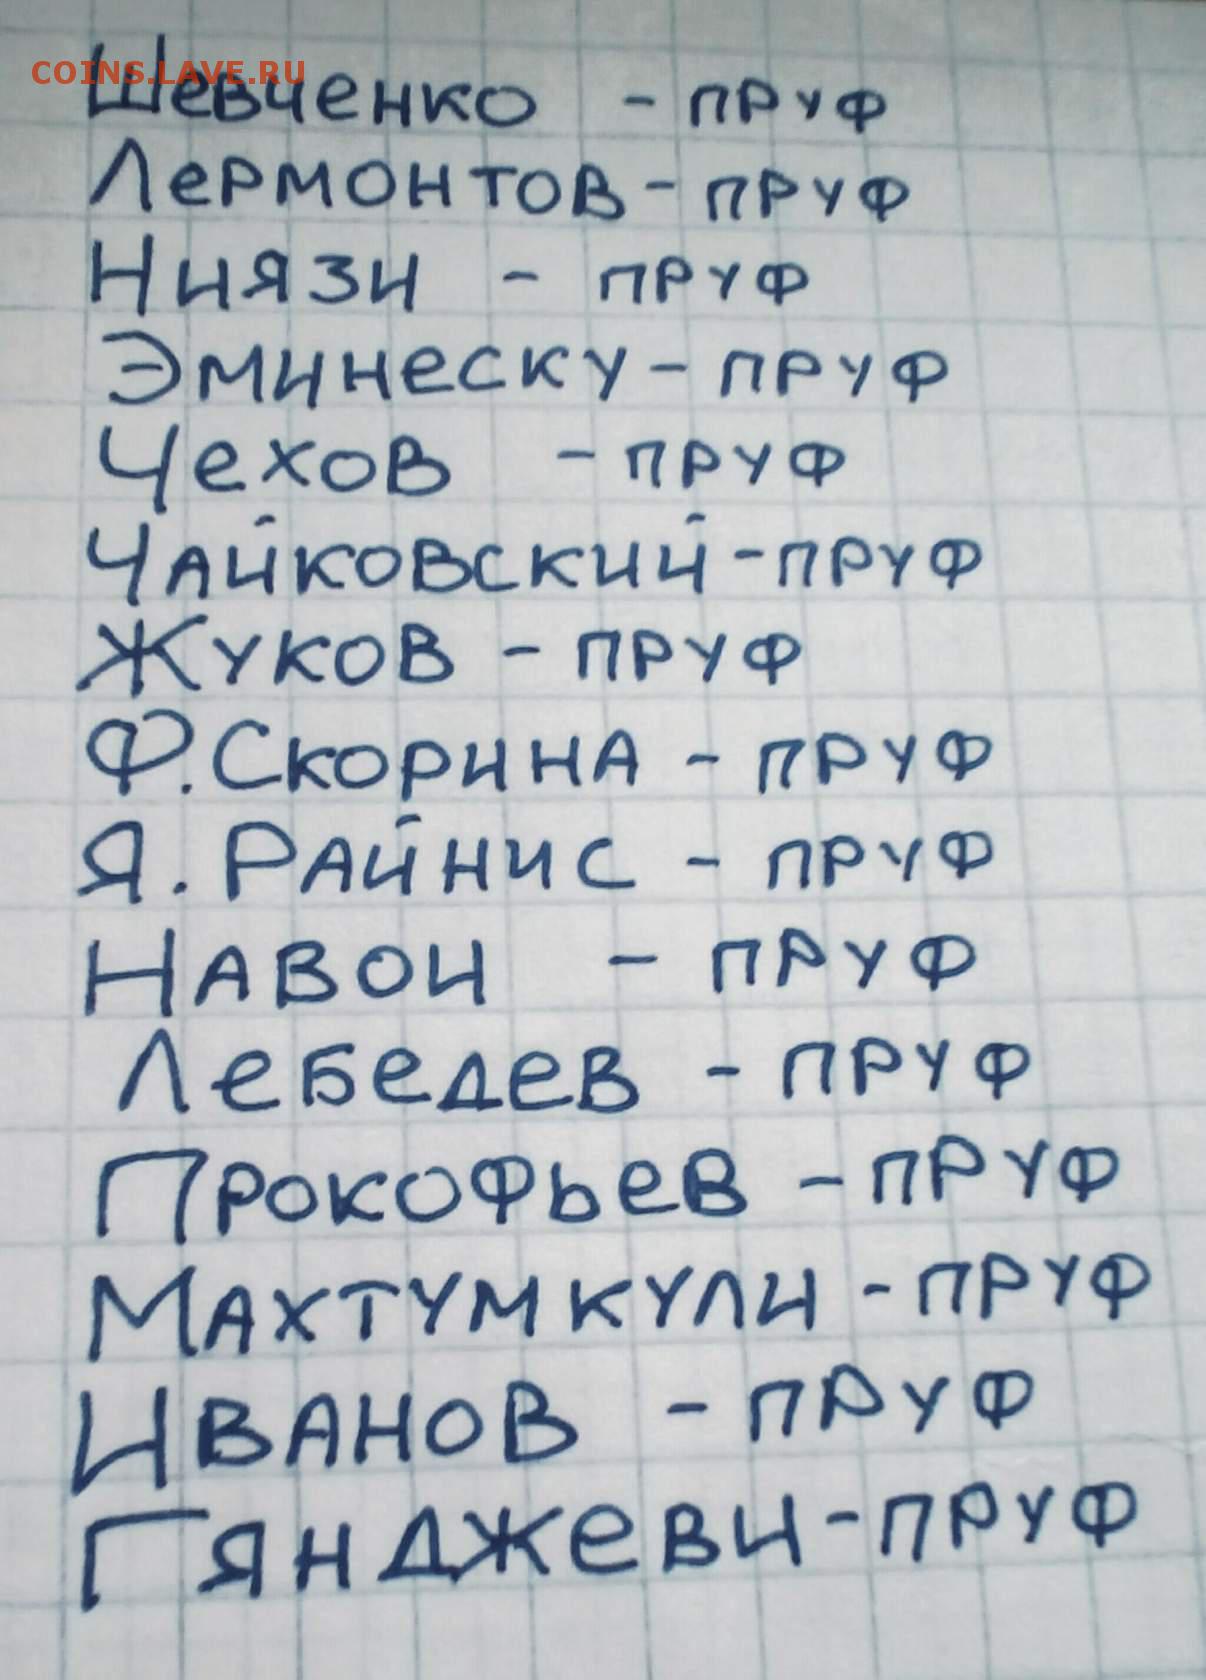 COINS.LAVE.RU
Шевченко - пруф
Лермонтов - пруф
Ниязи - пруф
Эминеску - пруф
Чехов - пруф
Чайковский - пруф
Жуков - пруф
Ф. Скорина - пруф
Я. Райнис - пруф
Навои - пруф
Лебедев - пруф
Прокофьев - пруф
Махтумкули - пруф
Иванов - пруф
Гянджеви - пруф